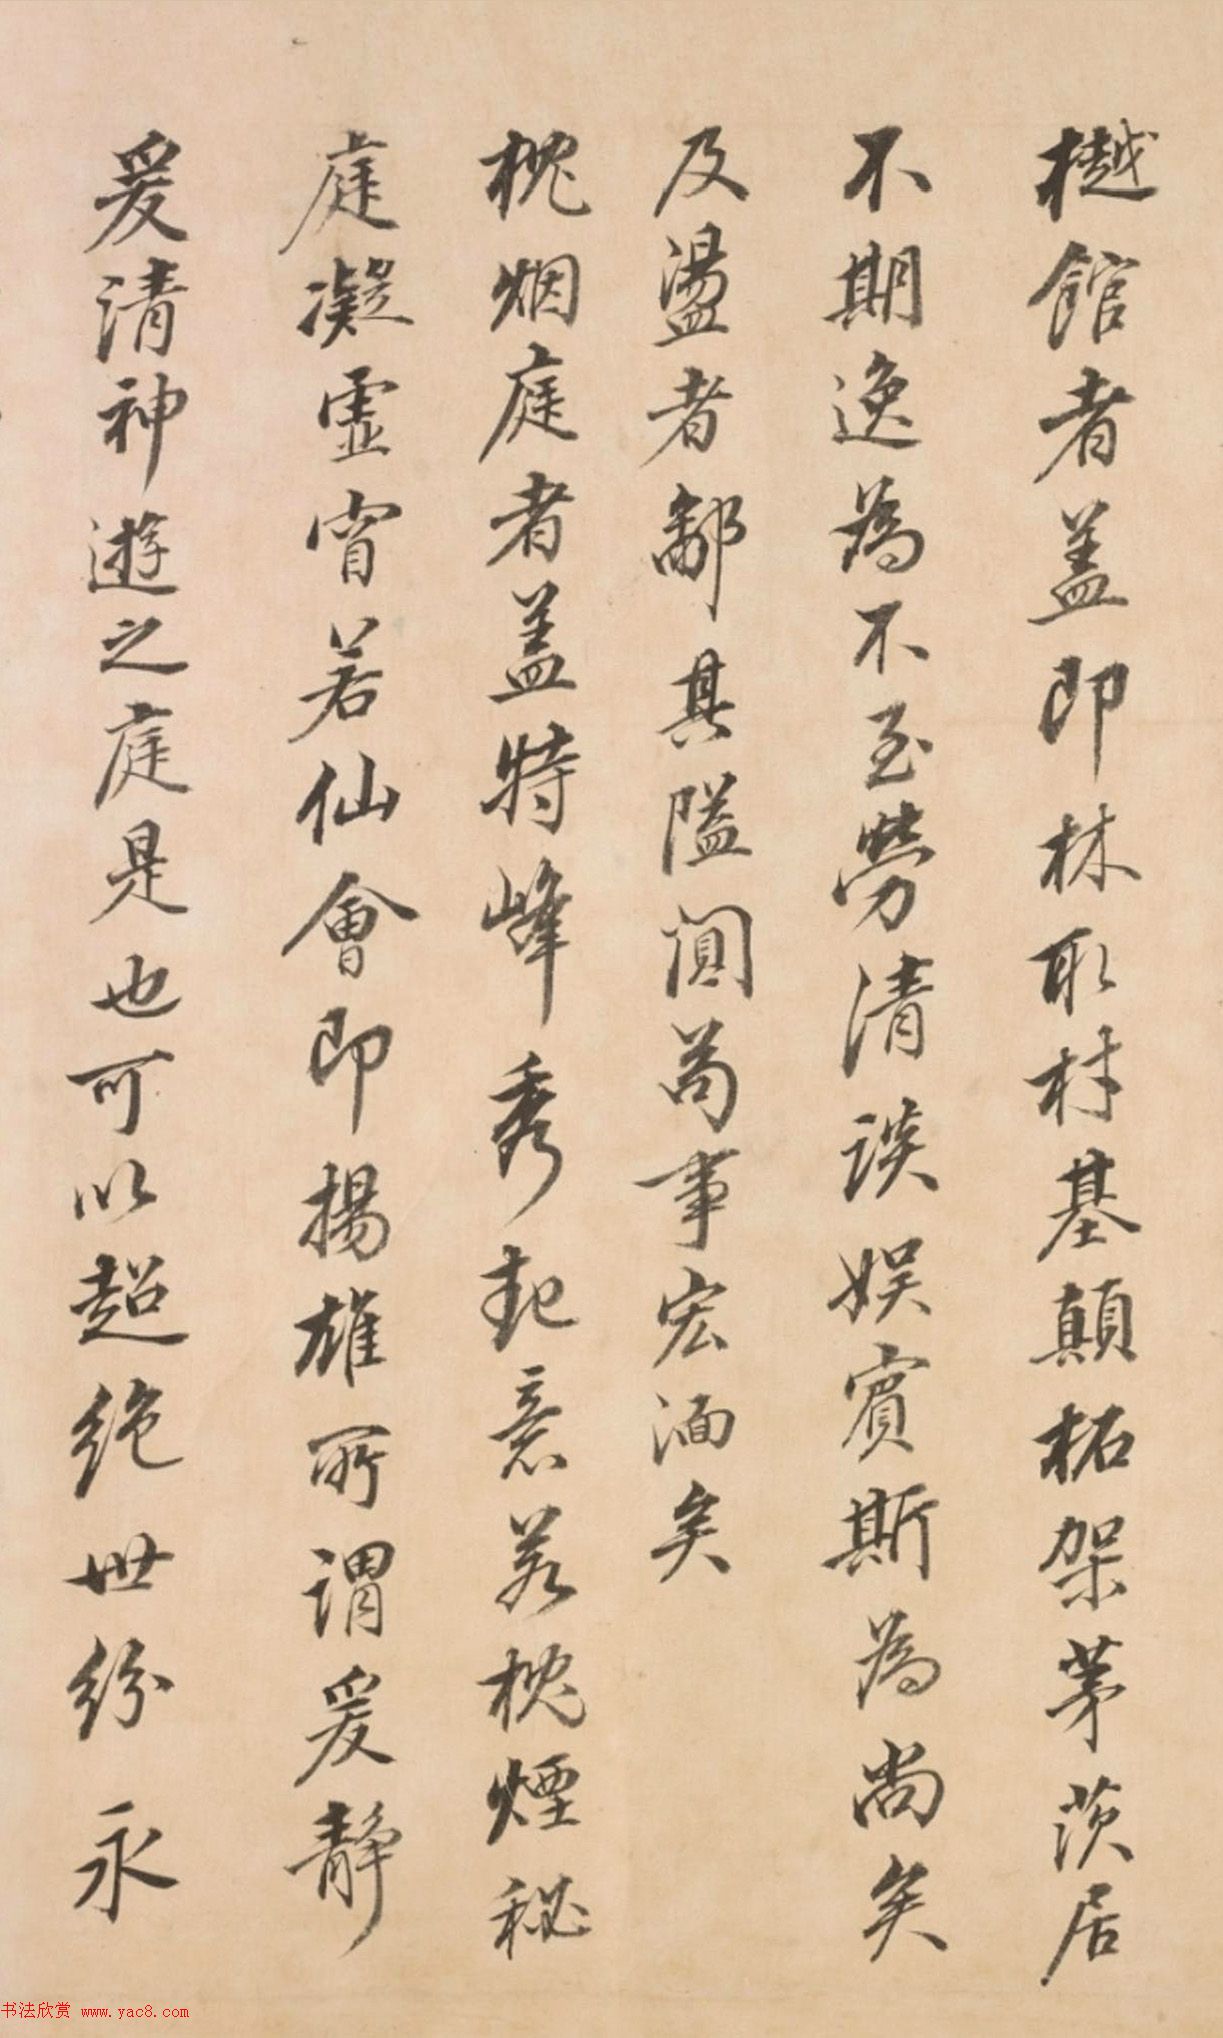 樾館者盖即林取材基顛柘架茅茨居
不期逸為不至勞清談娯賓斯為尚矣
及盪者鄙其隘闃苟事宏湎矣
枕烟庭者盖特峰秀起意若枕煙秘
庭凝虚窅若仙會即揚雄所謂爰静
爰清神遊之庭是也可以超絶世紛永
书法欣赏 www.yac8.com